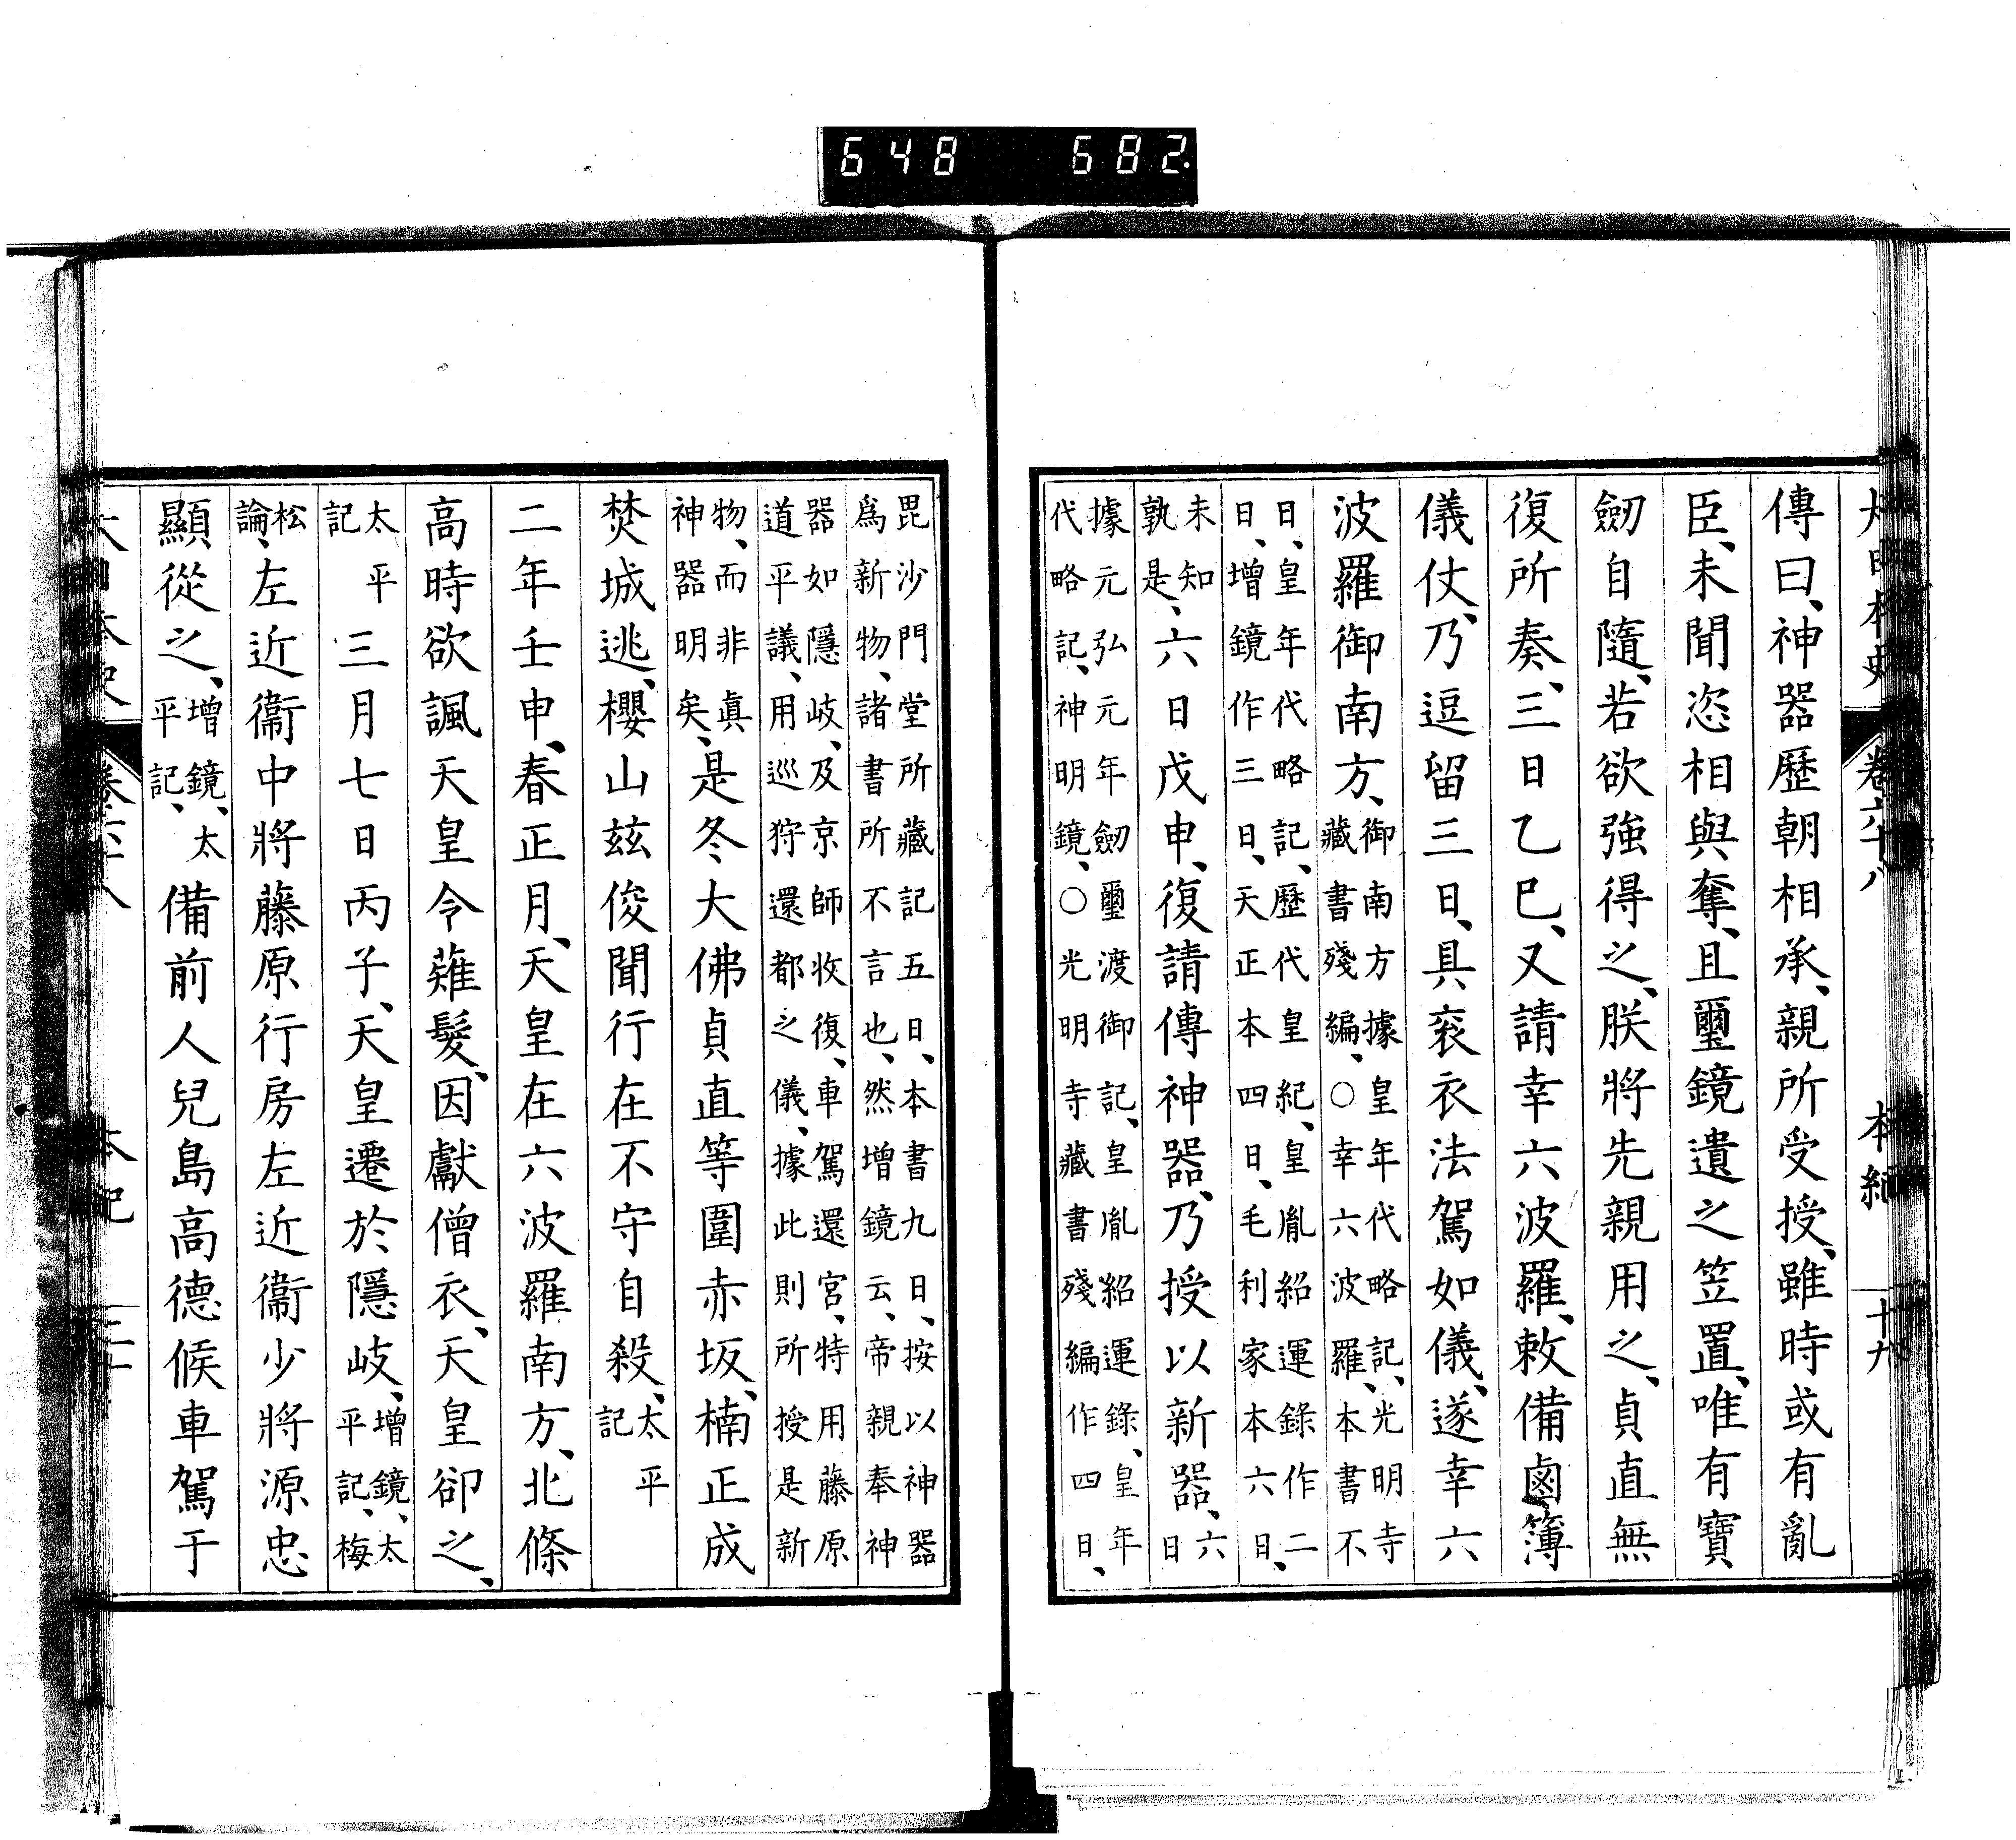 大日本史 卷六十八 本紀 十九
傳曰、神器歷朝相承、親所受授、雖時或有亂
臣、未聞恣相與奪、且璽鏡遺之笠置、唯有寶
劒自隨、若欲強得之、朕將先親用之、貞直無
復所奏、三日乙巳、又請幸六波羅、敕備鹵簿
儀仗、乃逗留三日、具袞衣法駕如儀、遂幸六
波羅御南方、御南方據皇年代略記、光明寺藏書殘編、○幸六波羅、本書不
日、皇年代略記、歷代皇紀、皇胤紹運錄作二
日、增鏡作三日、天正本四日、毛利家本六日、
未知孰是、六日戊申、復請傳神器、乃授以新器、六日
據元弘元年劒璽渡御記、皇胤紹運錄、皇年
代略記、神明鏡、○光明寺藏書殘編作四日、
毘沙門堂所藏記五日、本書九日、按以神器
爲新物、諸書所不言也、然增鏡云、帝親奉神
器如隱岐、及京師收復、車駕還宮、特用藤原
道平議、用巡狩還都之儀、據此則所授是新
物、而非眞神器明矣、是冬、大佛貞直等圍赤坂、楠正成
焚城逃、櫻山玆俊聞行在不守自殺、太平記
二年壬申、春正月、天皇在六波羅南方、北條
高時欲諷天皇令薙髮、因獻僧衣、天皇卻之、
太平記三月七日丙子、天皇遷於隱岐、增鏡、太平記、梅
松論、左近衞中將藤原行房左近衞少將源忠
顯從之、增鏡、太平記、備前人兒島高德候車駕于
大日本史 卷六十八 本紀 二十
648 682